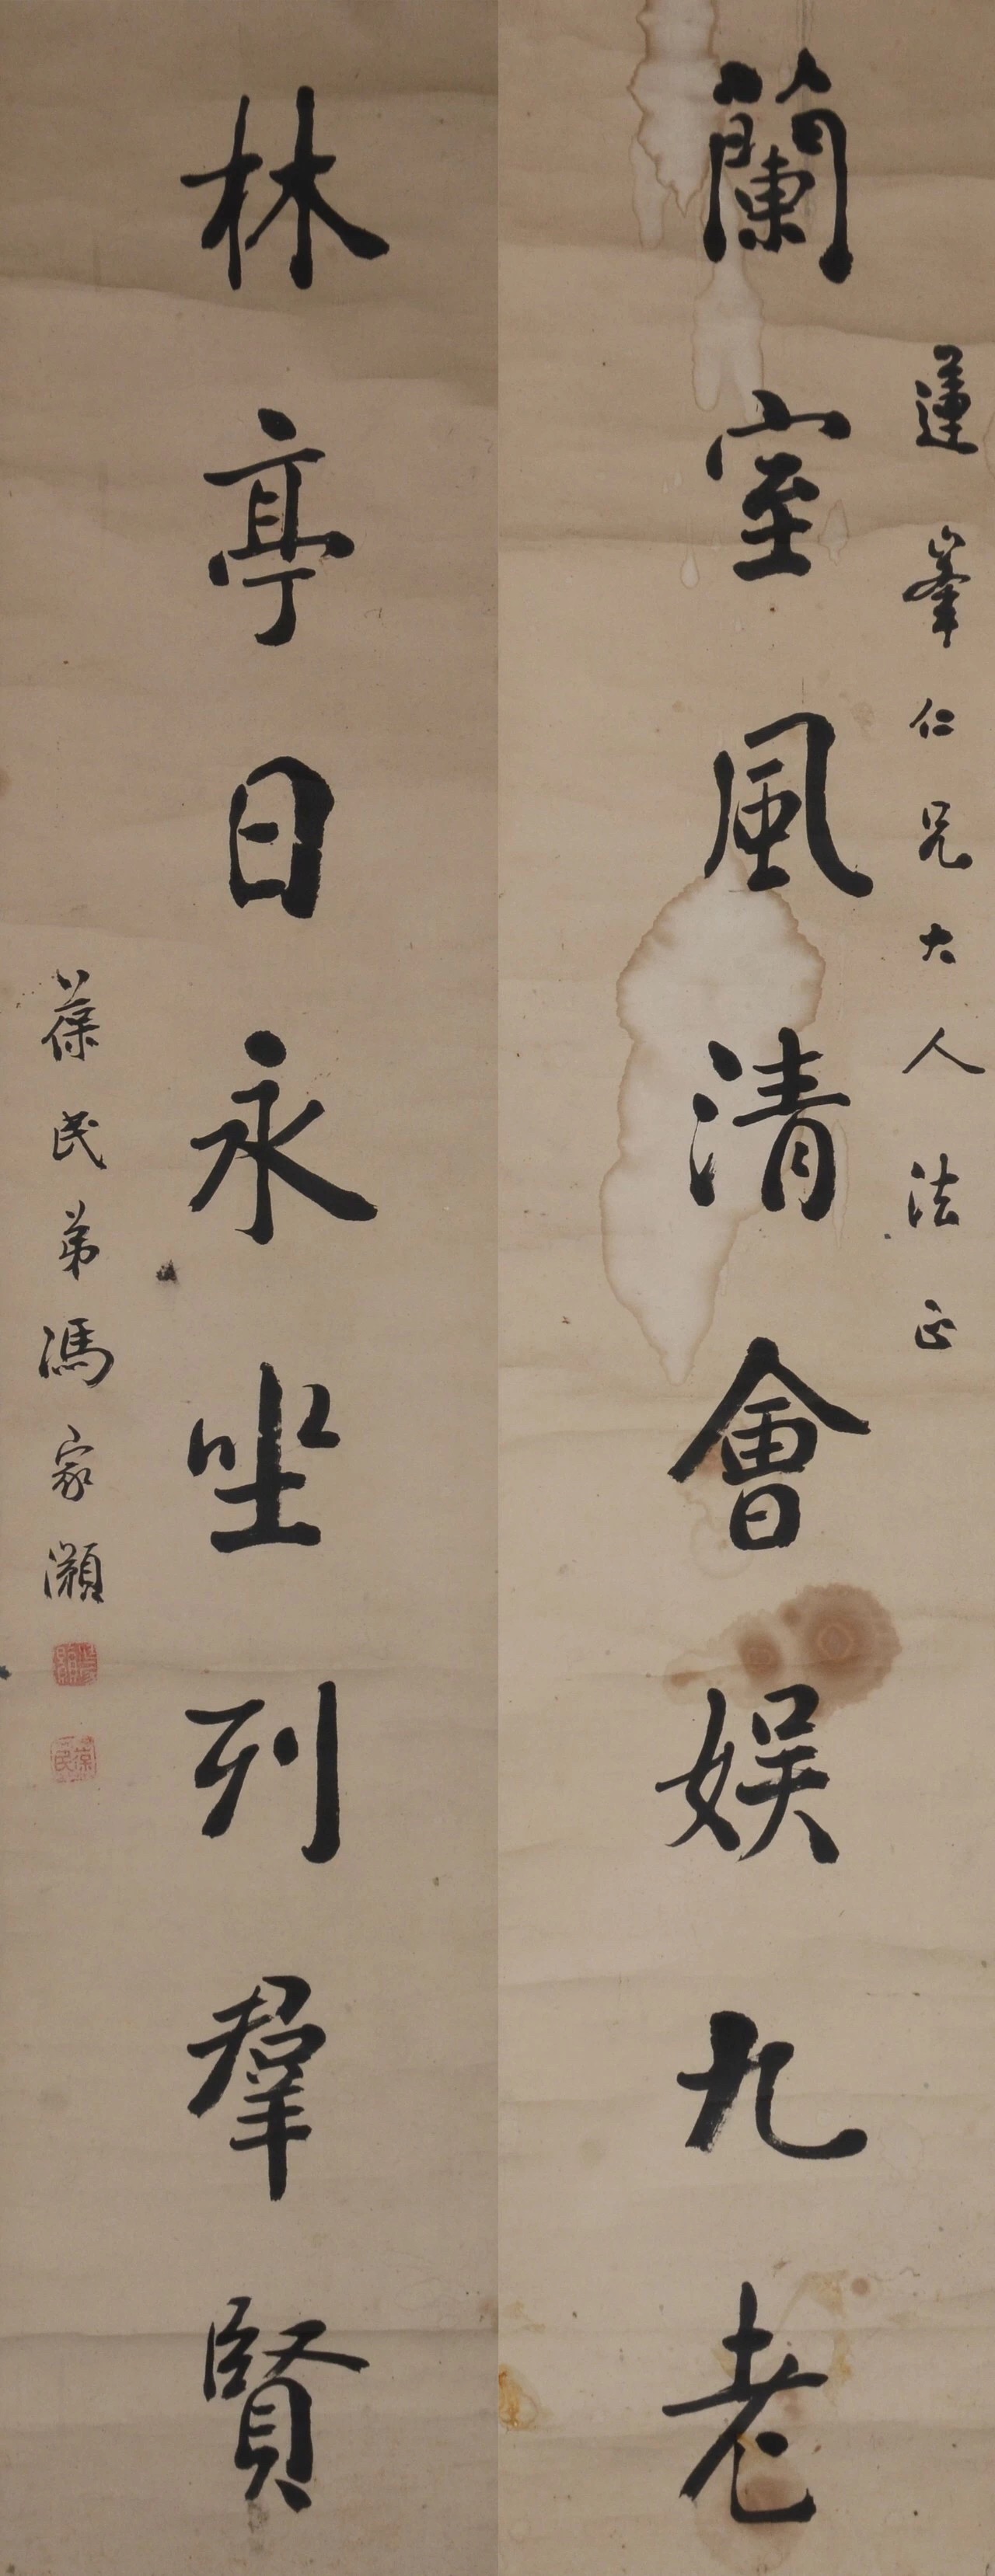 蓮峯仁兄大人法正
蘭室風清會娛九老
林亭日永坐列羣賢
葆民弟馮家灝
葆民